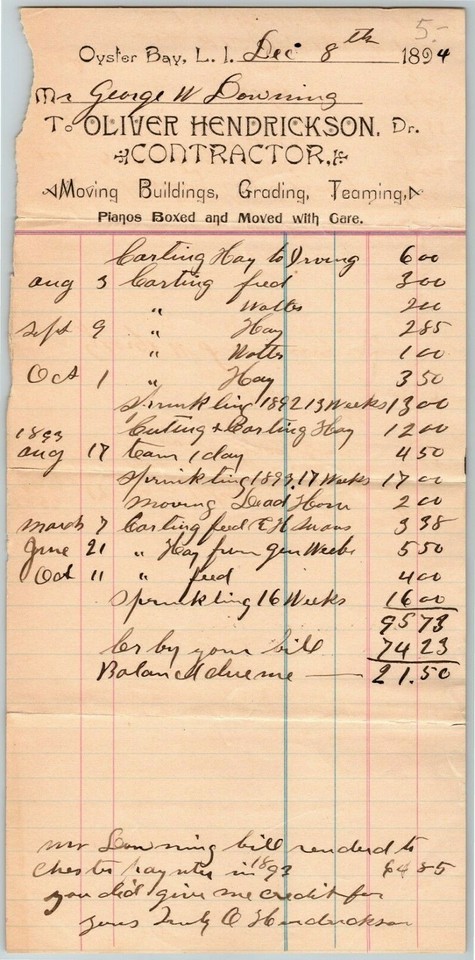 5-
Oyster Bay, L. I. Dec 8th 1894
Mr George W Downing
To OLIVER HENDRICKSON, Dr.
CONTRACTOR,
Moving Buildings, Grading, Teaming,
Pianos Boxed and Moved with Care.
Carting Hay to Irving 6 00
aug 3 Carting feed 3 00
" Watter 2 00
Sept 9 " Hay 2 85
" Watter 1 00
Oct 1 " Hay 3 50
Sprinkling 1892 13 Weeks 13 00
1893 Cuting & Carting Hay 12 00
aug 17 team 1 day 4 50
Sprinkling 1893 17 Weeks 17 00
moving Dead Horse 2 00
march 7 Carting feed 3 38
June 21 " Hay from 5 50
Oct 11 " feed 4 00
Sprinkling 16 Weeks 16 00
95 73
Cr by your bill 74 23
Balanc due me 21.50
mr Downing bill renderd to
Chester in 1893 64 85
you did give me credit for
yours Truly O Hendrickson